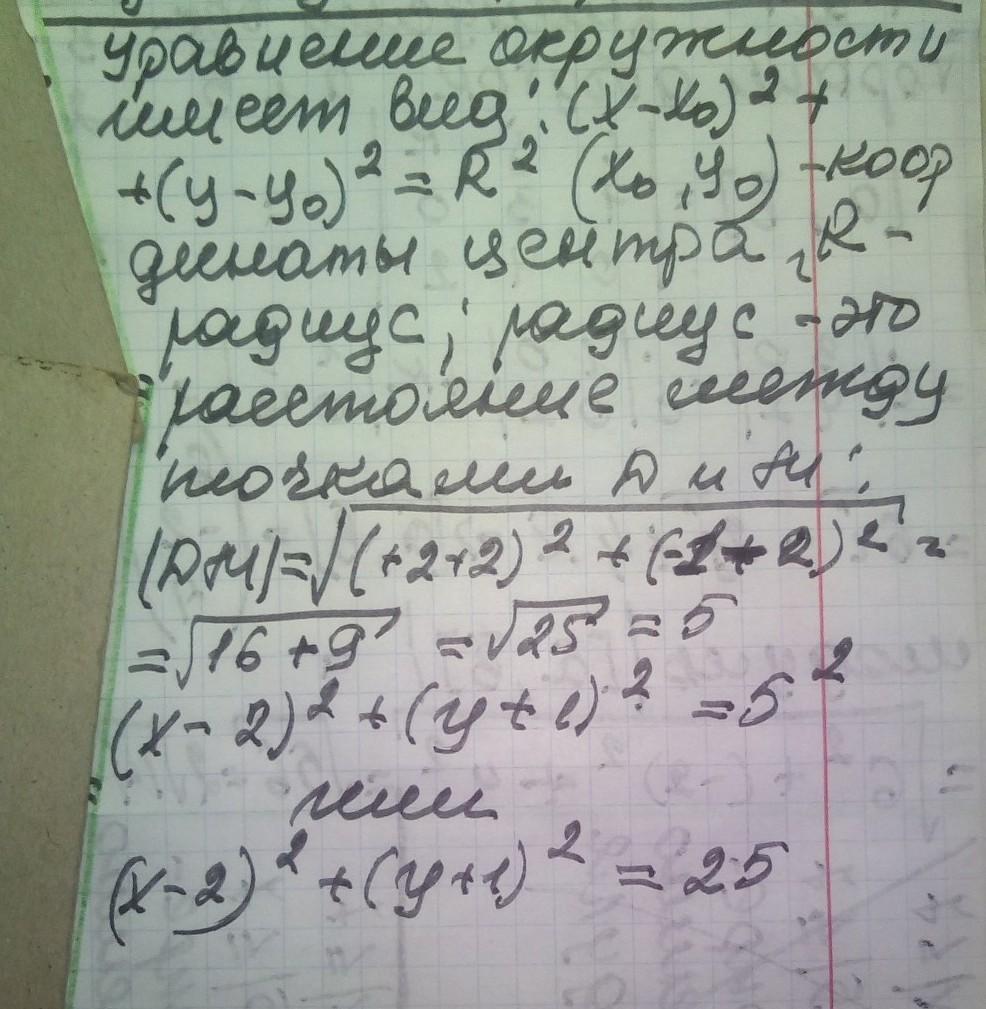 Уравнение окружности
имеет вид: (x-x₀)² +
+(y-y₀)² = R² (x₀, y₀) -коор
динаты центра, R-
радиус; радиус - это
расстояние между
точками D и М:
|DM|=√(+2+2)² + (-1+2)² =
=√16+9 =√25 = 5
(x-2)² +(y+1)² =5²
или
(x-2)² +(y+1)² = 25